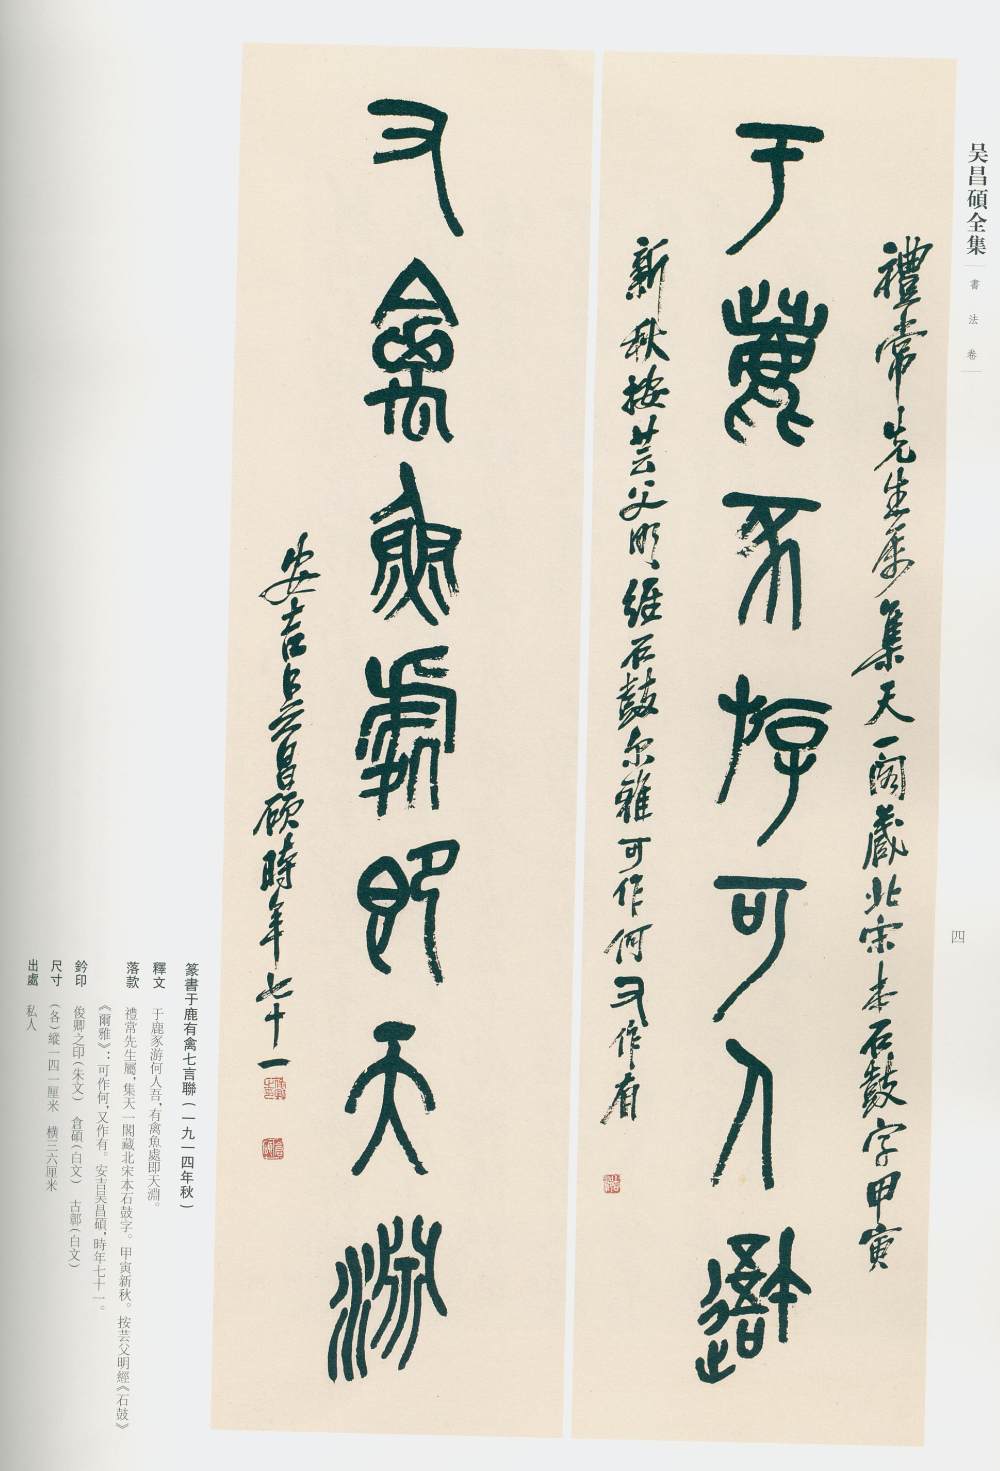 吴昌碩全集
書法卷
四
禮常先生属集天一閣藏北宋本石鼓字甲寅
于鹿豕游可人𨖍
新秋按芸父明經石鼓尔雅可作何又作有
又禽魚處即天淵
安吉吴昌碩時年七十一
篆書于鹿有禽七言聯（一九一四年秋）
釋文 于鹿豕游何人吾，有禽魚處即天淵。
落款 禮常先生屬，集天一閣藏北宋本石鼓字。甲寅新秋。按芸父明經《石鼓》
《爾雅》：可作何，又作有。安吉吴昌碩，時年七十一。
鈐印 俊卿之印（朱文） 倉碩（白文） 古鄣（白文）
尺寸 （各）縱一四一厘米 横三六厘米
出處 私人